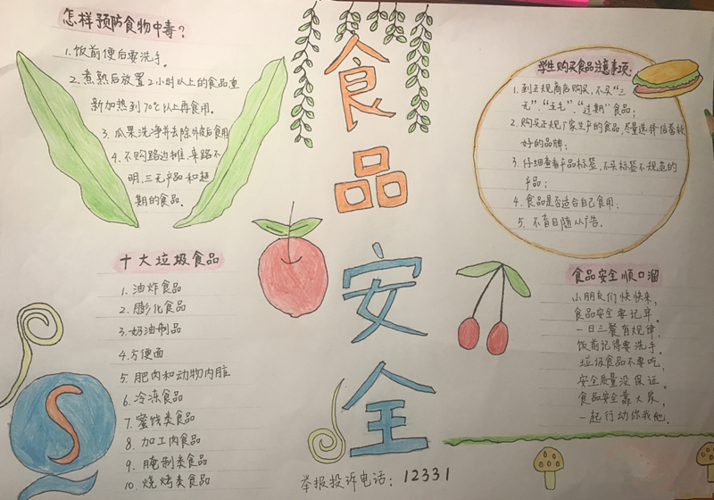 怎样预防食物中毒？
1.饭前便后要洗手。
2.煮熟后放置2小时以上的食品重
新加热到70℃以上再食用。
3.瓜果洗净并去除外皮后食用
4.不购路边摊、来路不
明、三无产品和超
期的食品。
食品安全
学生购买食品注意事项：
1.到正规商店购买，不买“三
无”、“五毛”、“过期”食品；
2.购买正规厂家生产的食品，尽量选择信誉较
好的品牌；
3.仔细查看产品标签，不买标签不规范的
产品；
4.食品是否适合自己食用；
5.不盲目随从广告。
十大垃圾食品
1.油炸食品
2.膨化食品
3.奶油制品
4.方便面
5.肥肉和动物内脏
6.冷冻食品
7.蜜饯类食品
8.加工肉食品
9.腌制类食品
10.烧烤类食品
S
食品安全顺口溜
小朋友们快快来，
食品安全要记牢。
一日三餐有规律，
饭前记得要洗手。
垃圾食品不要吃，
安全质量没保证。
食品安全靠大家，
一起行动你我他。
举报投诉电话：12331